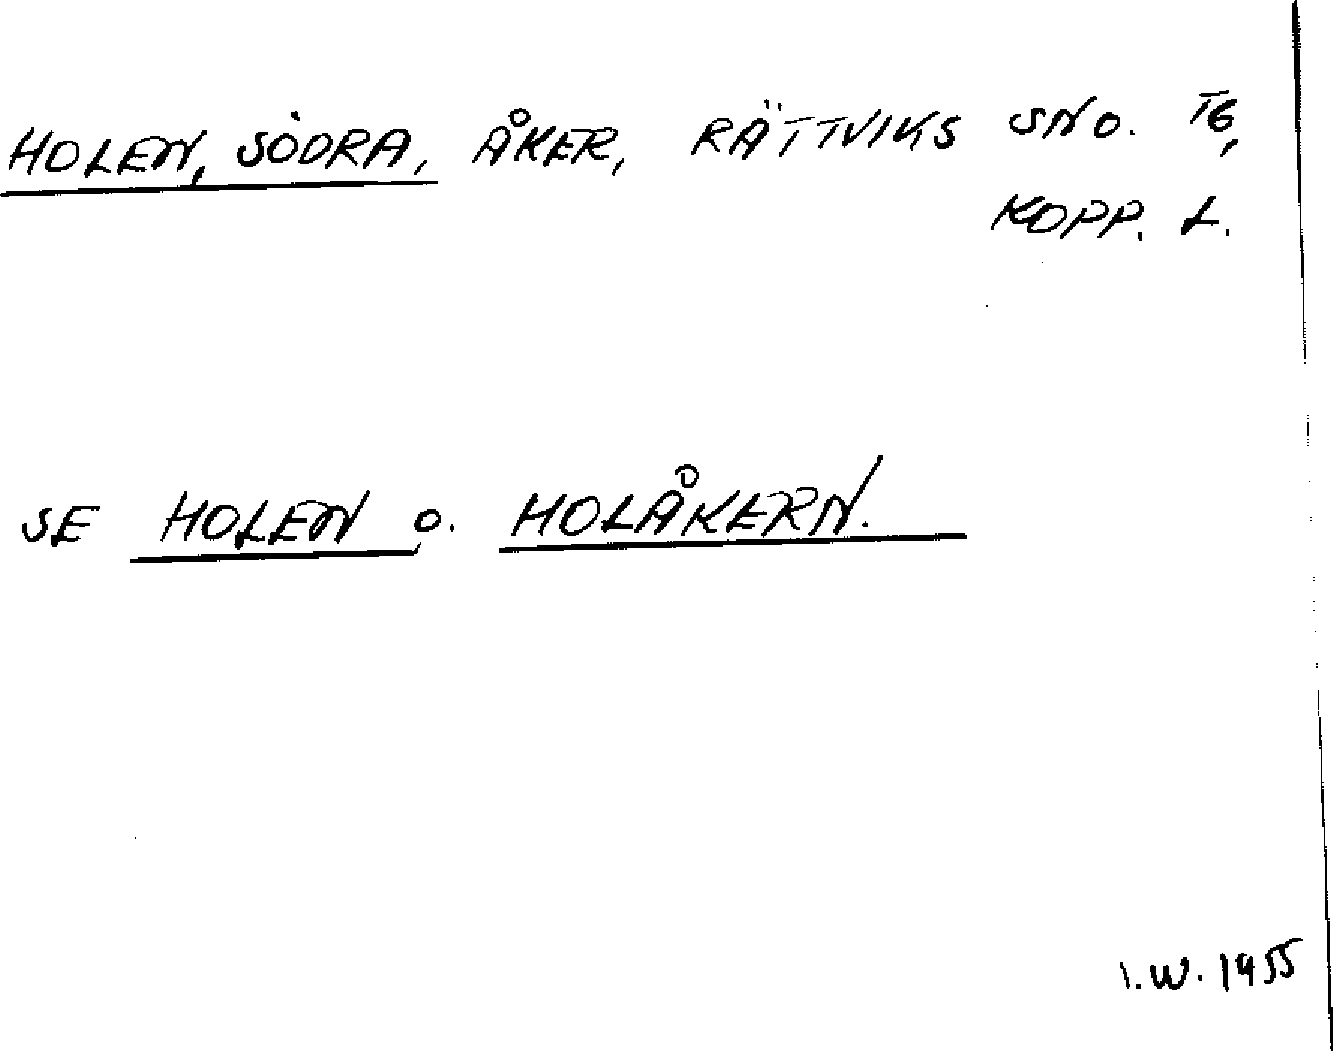 HOLEN, SÖDRA, ÅKER, RÄTTVIKS SND. TG,
KOPP. L.
SE HOLEN o. HOLÅKERN.
I.W. 1955